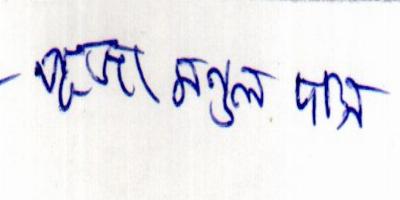 পূজা মণ্ডল দাস